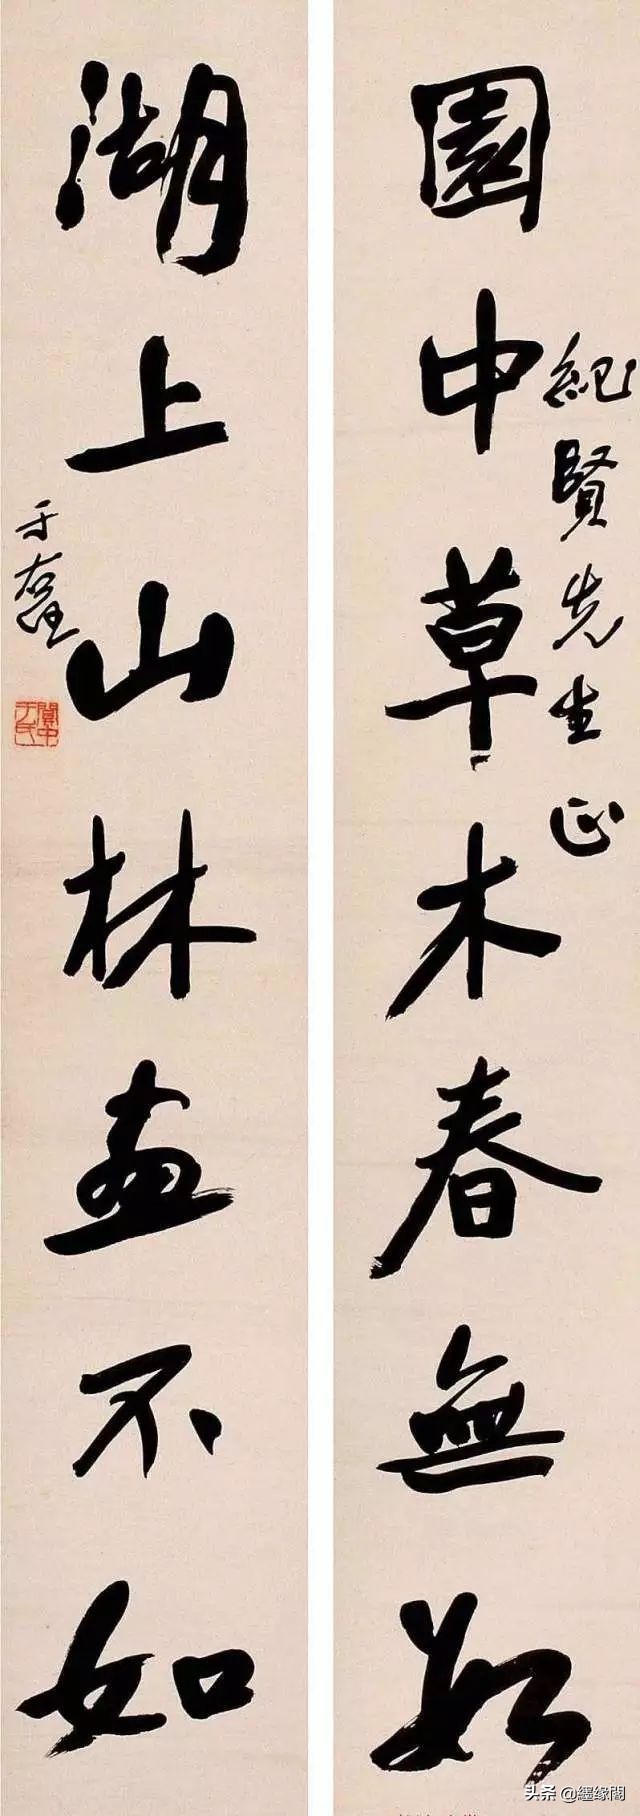 園中草木春無數
紀賢先生正
湖上山林畫不如
于右任
關中于氏
头条 @纒缘閣